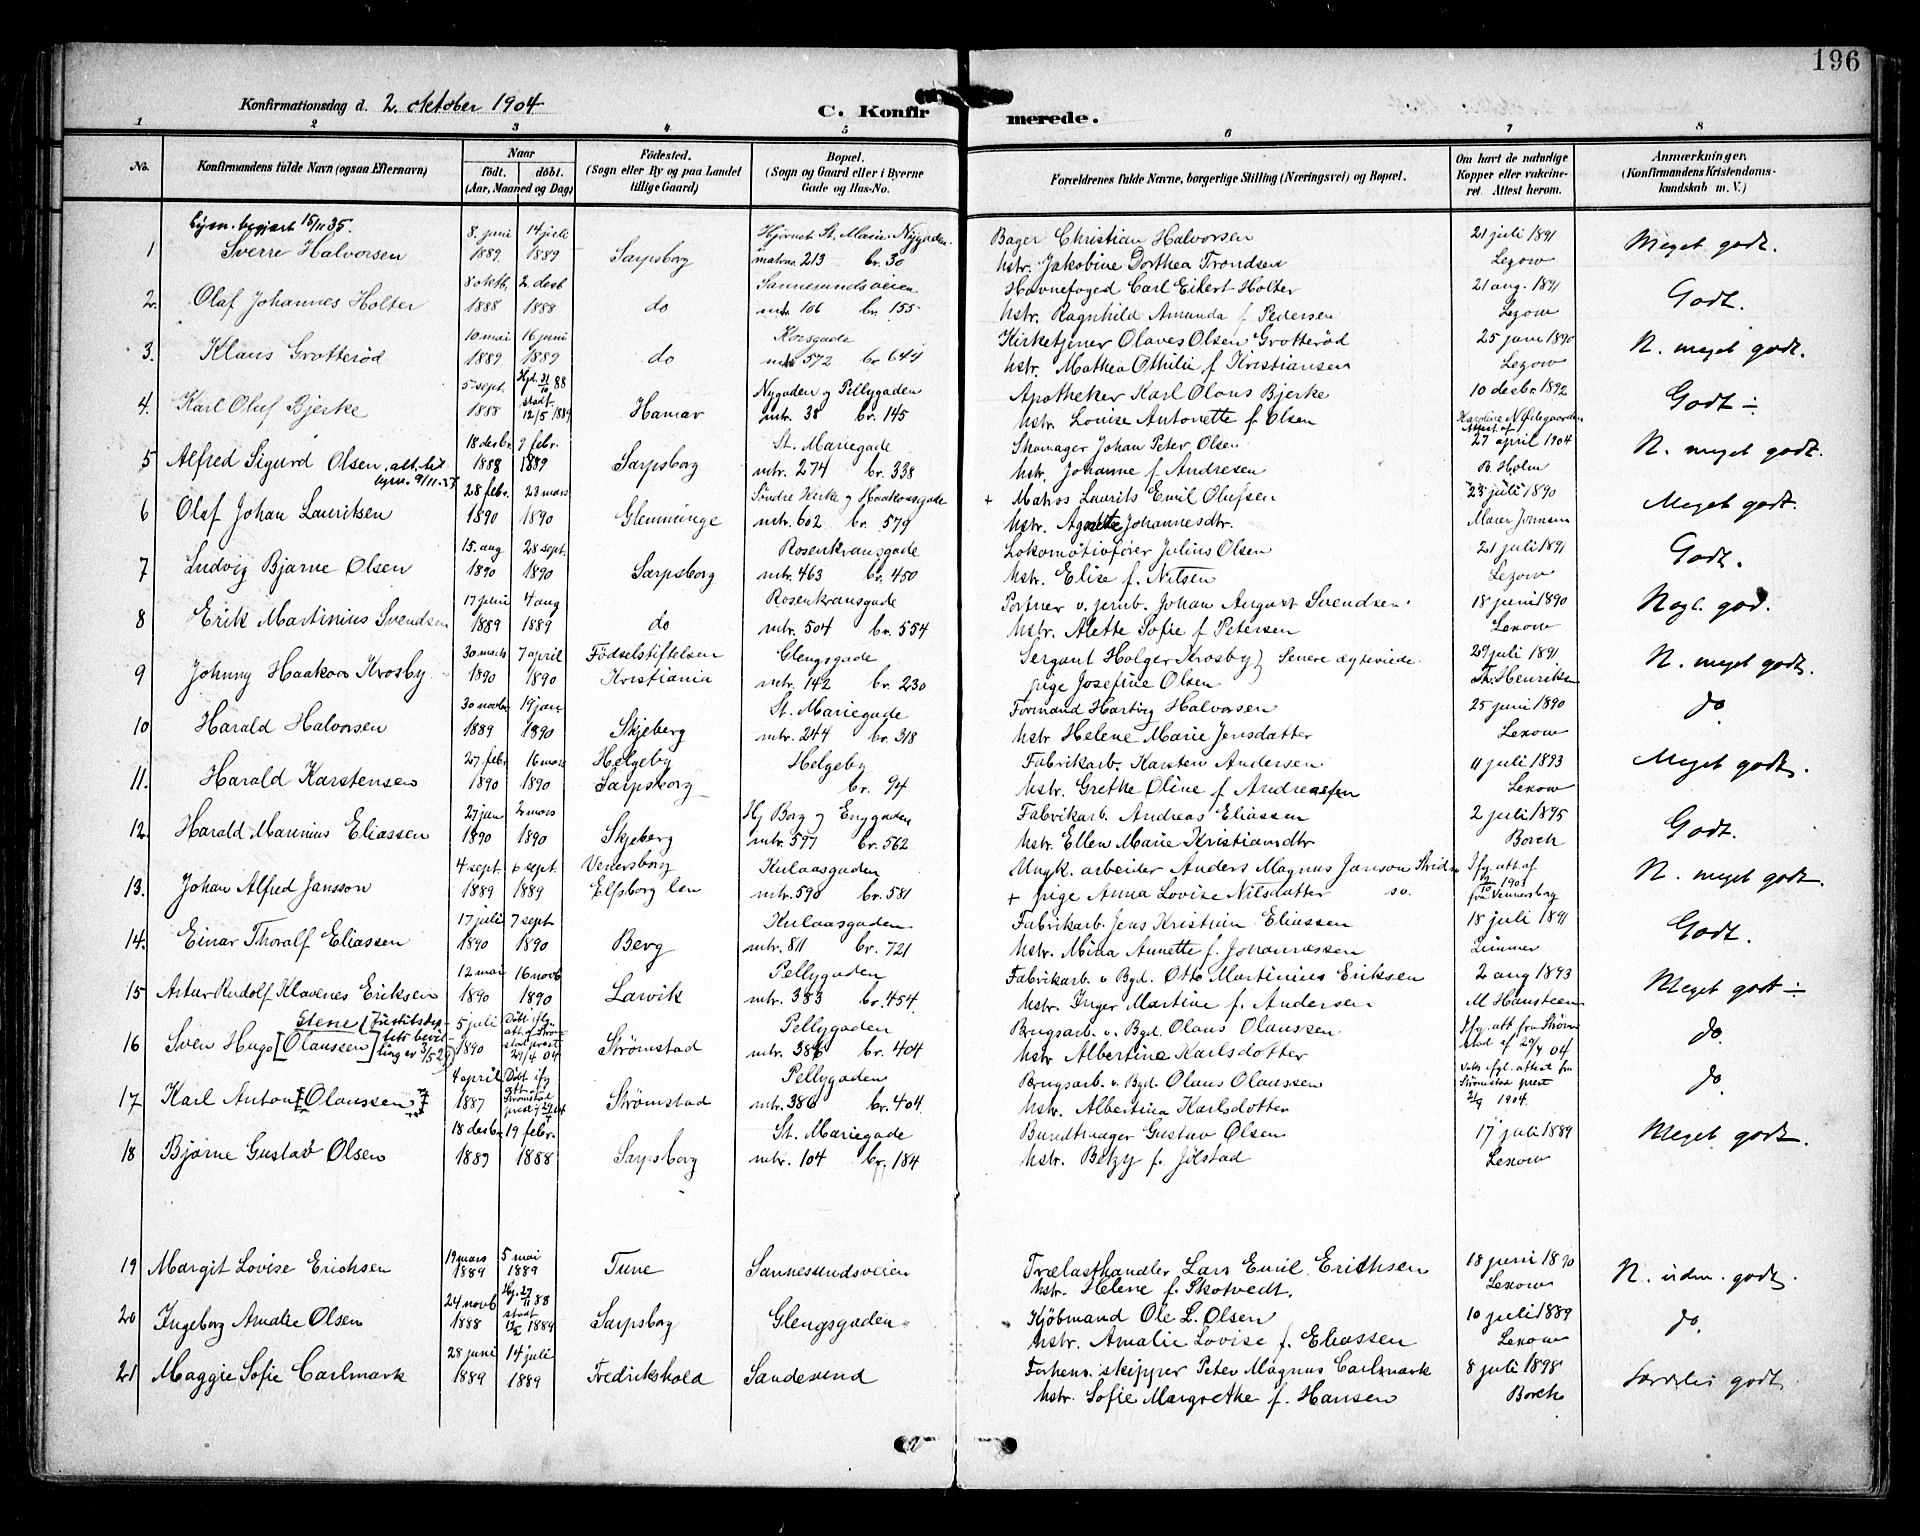 196
Konfirmationsdag d. 2. oktober 1904
C. Konfirmerede.
1 2 3 4 5 6 7 8
No. Konfirmandens fulde Navn (ogsaa Efternavn) Naar født. døbt. (Aar, Maaned og Dag) Fødested. (Sogn eller By og paa Landet tillige Gaard) Bopæl. (Sogn og Gaard eller i Byerne Gade og Hus-No. Forældrenes fulde Navne, borgerlige Stilling (Næringsvei) og Bopæl. Om havt de naturlige Kopper eller vakcineret. Attest herom. Anmærkninger. (Konfirmandens Kristendomskundskab m. V.)
begjært 15/11 35.
1 Sverre Halvorsen 8. juni 1889. 14 juli 1889 Sarpsborg Hjørnet St. Marie-Nygaden. matrno. 213 br. 30 Bager Christian Halvorsen
hstr. Jakobine Dorthea Trondsen 21 juli 1891 Lexow Meget godt.
2. Olaf Johannes Holter 8 oktb. 1888 2. desb 1888 do Sannesundsveien mtr 106 br. 155 Havnefoged Carl Eikert Holter
hstr. Ragnhild Amanda f Pedersen 21 aug. 1891 Lexow Godt.
3. Klaus Grotterød 10 mai 1889 16 juni 1889 do Korsgade mtr 572 br 644 Kirketjener Olaves Olsen Grotterød
hstr. Mathea Othilie f Kristiansen 25 juni 1890 Lexow N. meget godt.
4. Karl Oluf Bjerke 5 sept. 1888 Hjd. 31/10 88 stadf. 12/5 1889 Hamar Nygaden og Pellygaden mtr. 38 br. 145 Apotheker Karl Olaus Bjerke
hstr. Louise Antonette f. Olsen 10 desbr 1892 Godt ÷
5 Alfred Sigurd Olsen. 18 desbr. 1888 9 febr. 1889 Sarpsborg St. Mariegade mtr. 274 br. 338 Skomager Johan Peter Olsen
hstr. Johanne f. Andresen Attest af 27 april 1904 B. Holm N. meget godt.
6 Olaf Johan Lauritsen 28 febr. 1890 23 mars 1890 Glemminge Søndre Kirke og Haakonsgade mtr. 602 br. 579 + Matros Laurits Emil Olufsen
hstr. Agnette Johannesdtr. 23 juli 1890 Meget godt.
7 Ludvig Bjarne Olsen 15. aug 1890 28 sept. 1890 Sarpsborg Rosenkransgade mtr. 463 br. 450 Lokomotivfører Julius Olsen
hstr. Elise f. Nilsen 21 juli 1891 Lexow Godt.
8 Erik Martinius Svendsen 17 juni 1889 4 aug 1889 do Rosenkransgade mtr. 504 br. 554 Portner v. jernb. Johan August Svendsen.
hstr. Alette Sofie f Petersen 18 juni 1890 Lexow Nogl. god.
9 Johnny Haakon Krosby 30 mars 1890 7 april 1890 Fødselstiftelsen Kristiania Glengsgade mtr. 142 br. 230 Sergant Holger Krosby } Senere ægteviede.
pige Josefine Olsen 29 juli 1891 Th. Henriksen N. meget godt.
10 Harald Halvorsen 30 novbr 1889 19 jan 1890 Skjeberg St. Mariegade mtr. 244 br. 318 Formand Hartvig Halvorsen
hstr Helene Marie Jensdatter 25 juni 1890 Lexow do
11. Harald Karstensen 27 febr 1890 16 mars 1890 Helgeby Sarpsborg Helgeby br. 94 Fabrikarb. Karsten Andersen
hstr. Grethe Oline f Andreassen 11 juli 1893 Lexow Meget godt.
12. Harald Marinius Eliassen 27 jan 1890 2 mars 1890 Skjeberg Hj Borg og Enggaden mtr. 597 br. 562 Fabrikarb. Andreas Eliassen
hstr. Ellen Marie Kristiansdtr 2 juli 1895 Borch Godt.
13. Johan Alfred Jansson 4 sept. 1889 6 sept. 1889 Venersborg Elfsborg len Kulaasgaden mtr. 590 br. 581 Ugyk. arbeider Anders Magnus Janson
+ pige Anna Lovise Nilsdatter Ifg. att. af fra Vennersborg N. meget godt.
14. Einar Thoralf Eliassen 17 juli 1890 7 sept 1890 Berg Kulaasgaden mtr. 811 br. 721 Fabrikarb. Jens Kristian Eliassen
hstr. Mina Annette f. Johannessen 18 juli 1891 Godt.
15 Artur Rudolf Klavenes Eriksen 12 mai 1890 16 novb 1890 Larvik Pellygaden mtr. 383 br. 454 Fabrikarb. v Bgd. Otto Martinius Eriksen
hstr. Inger Martine f. Andersen 2 aug 1893 M Hansteen Meget godt ÷
16 Sven Hugo [Olaussen] Stene (Justitsdeptets bevilling er 3/5 29) 5 juli 1890 Døbt iflg att. af Strømstad prest 29/4 04 Strømstad Pellygaden mtr. 386 br. 404 Brugsarb. v. Bgd. Olaus Olaussen
hstr Albertine Karlsdotter Ifg. att fra Strømstad af 29/4 04 do
17 Karl Anton [Olaussen] 4 april 1887 Døbt ifg att. af Strømstad prest 29/4 04 Strømstad Pellygaden mtr. 386 br. 404. Brugsarb. v. Bgd. Olaus Olaussen
hstr. Albertina Karlsdotter Vaks ifgl. attest fra Strømstad prest 1904. do
18 Bjarne Gustav Olsen 18 desbr. 1889 19 febr. 1888 Sarpsborg St. Mariegade mtr. 104 br. 184 Bundtmager Gustav Olsen
hstr. Betzy f. Jølstad 17 juli 1889 Lexow Meget godt.
19 Margit Lovise Erichsen 19 mars 1889 5 mai 1889 Tune Sannesundsveien Trælasthandler Lars Emil Erichsen
hstr. Helene f. Skotvedt. 18 juni 1890 Lexow N. udm. godt.
20 Ingeborg Amalie Olsen 24 novb 1888 Hj. 27/11 88 stadf. 1889 Sarpsborg Glengsgaden Kjøbmand Ole L. Olsen
hstr. Amalie Lovise f. Eliassen 10 juli 1889 Lexow do.
21 Maggie Sofie Carlmark 28 juni 1889 14 juli 1889 Fredrikshald Sandesund Forhenv. skipper Peter Magnus Carlmark
hstr. Sofie Margrethe f. Hansen 8 juli 1898 Borch Særdeles godt